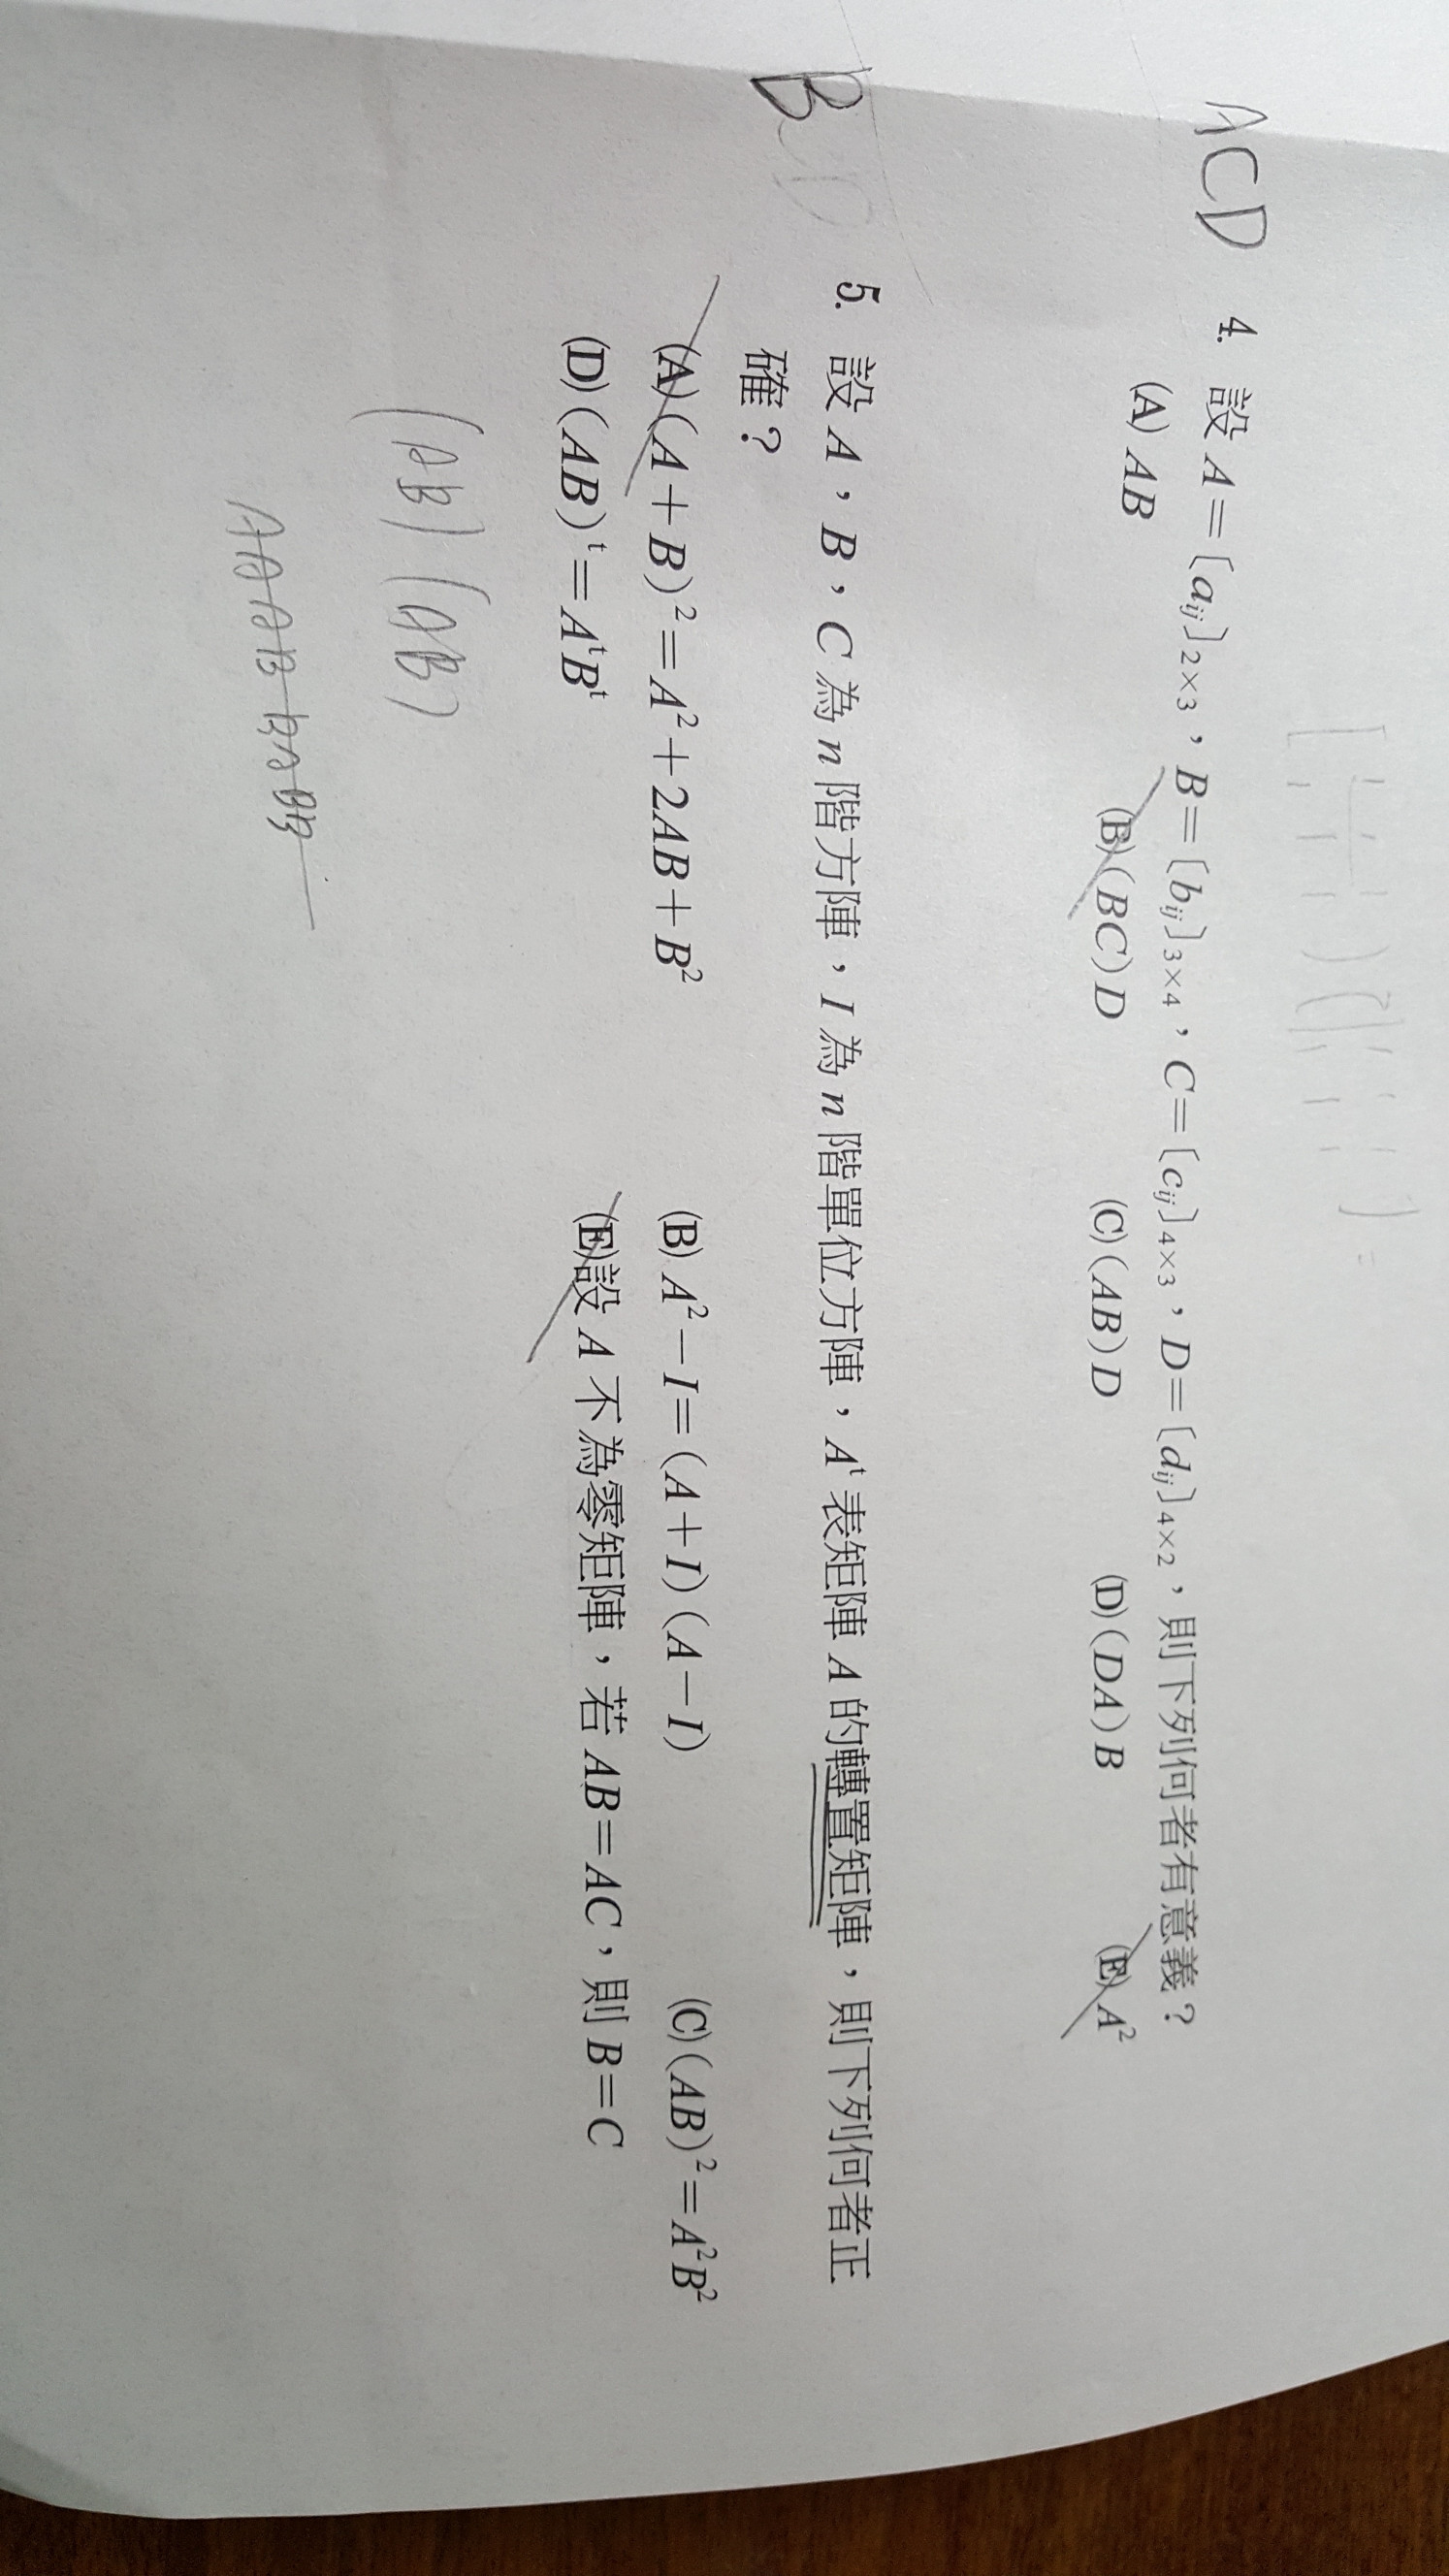 ACD 4. 設 A=〔aij〕2×3，B=〔bij〕3×4，C=〔cij〕4×3，D=〔dij〕4×2，則下列何者有意義？
(A) AB (B)(BC)D (C)(AB)D (D)(DA)B (E) A²
B 5. 設 A，B，C 為 n 階方陣，I 為 n 階單位方陣，Aᵗ 表矩陣 A 的轉置矩陣，則下列何者正
確？
(A)(A+B)²=A²+2AB+B² (B) A²−I=(A+I)(A−I) (C)(AB)²=A²B²
(D)(AB)ᵗ=AᵗBᵗ (E)設 A 不為零矩陣，若 AB=AC，則 B=C
(AB)(AB)